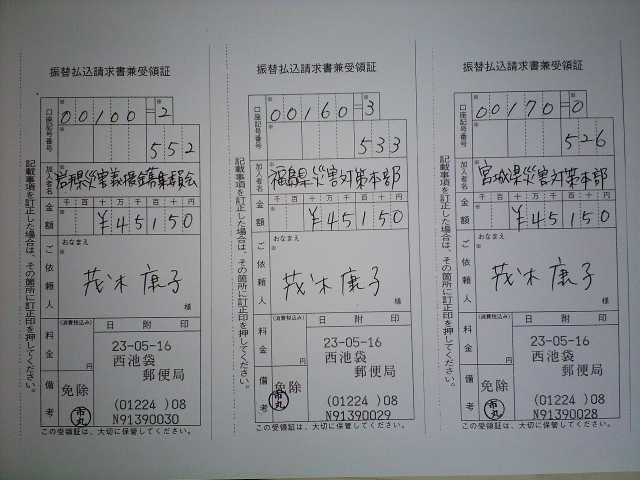 振替払込請求書兼受領証
口座記号番号
00100=2
552
加入者名
岩手県災害義援金募集委員会
金額
千百十万千百十円
¥45150
ご依頼人
おなまえ
茂木康子
様
料金
(消費税込み)
円
日附印
23-05-16
西池袋
郵便局
(01224 )08
N91390030
備考
免除
市丸
記載事項を訂正した場合は、その箇所に訂正印を押してください。
この受領証は、大切に保管してください。
振替払込請求書兼受領証
口座記号番号
00160=3
533
加入者名
福島県災害対策本部
金額
千百十万千百十円
¥45150
ご依頼人
おなまえ
茂木康子
様
料金
(消費税込み)
円
日附印
23-05-16
西池袋
郵便局
(01224 )08
N91390029
備考
免除
市丸
記載事項を訂正した場合は、その箇所に訂正印を押してください。
この受領証は、大切に保管してください。
振替払込請求書兼受領証
口座記号番号
00170=0
526
加入者名
宮城県災害対策本部
金額
千百十万千百十円
¥45150
ご依頼人
おなまえ
茂木康子
様
料金
(消費税込み)
円
日附印
23-05-16
西池袋
郵便局
(01224 )08
N91390028
備考
免除
市丸
記載事項を訂正した場合は、その箇所に訂正印を押してください。
この受領証は、大切に保管してください。